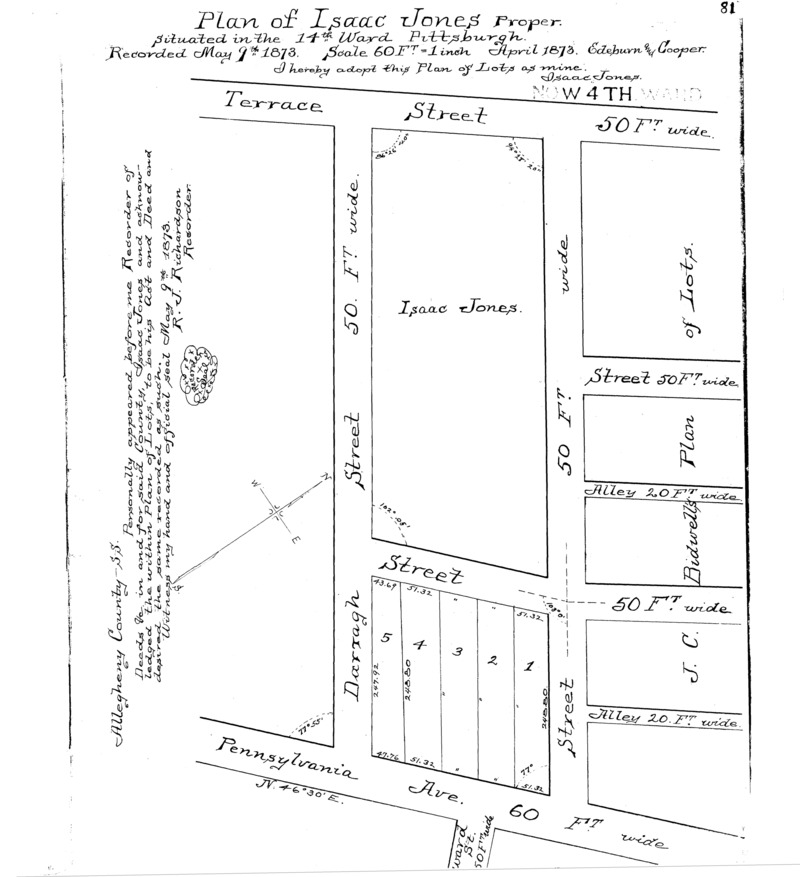 81
Plan of Isaac Jones Proper.
Situated in the 14th Ward Pittsburgh.
Recorded May 9th 1873. Scale 60 FT = 1 inch April 1873. Edeburn & Cooper.
I hereby adopt this Plan of Lots as mine.
Isaac Jones.
NOW 4TH WARD
Terrace Street 50 FT wide.
Allegheny County S.S.
Personally appeared before me Recorder of
Deeds &c in and for said County, Isaac Jones and acknow-
ledged the within Plan of Lots, to be his act and Deed and
desired the same recorded as such.
Witness my hand and official seal May 9th 1873.
R. J. Richardson
Recorder.
W
N
E
S
Darragh Street 50. FT wide.
Isaac Jones.
102°-58'
Street 50 FT wide
J. C. Bidwell's Plan of Lots.
Street 50 FT wide
Alley 20 FT wide
Street 50 FT wide
Alley 20. FT wide
43.69 51.32 " " 51.32
5 4 3 2 1
247.92 248.80 " " 248.80
47.76 51.32 " " 51.32
77°
77°55'
Pennsylvania Ave. 60 FT wide
N. 46°30' E.
ward St. 50 FT wide